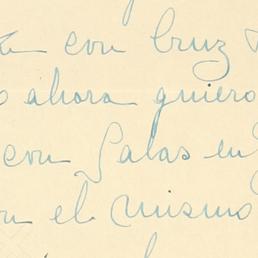 con Cruz
ahora quiero
con Salas en
el mismo